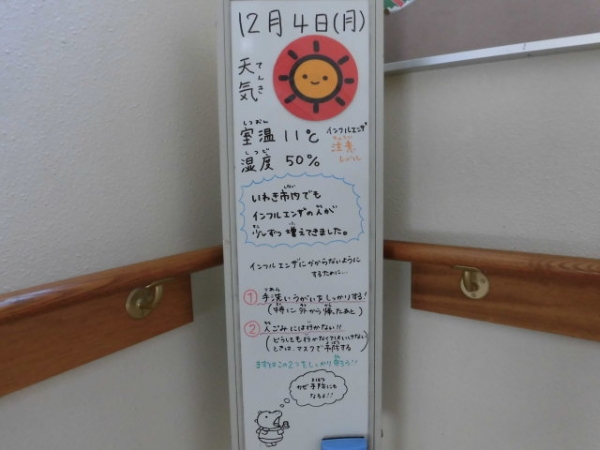 12月4日(月)
天気
てんき
室温 11℃
しつおん
湿度 50%
しつど
インフルエンザ
注意
いわき市内でも
インフルエンザの人が
少しずつ増えてきました。
インフルエンザにかからないように
するために…
① 手洗いうがいをしっかりする!
(特に外から帰ったあと)
② 人ごみには行かない!!
(どうしても行かなくてはいけない
ときは、マスクで予防する)
まずはこの2つをしっかり守ろう!!
かぜ予防にも
なるよ!!